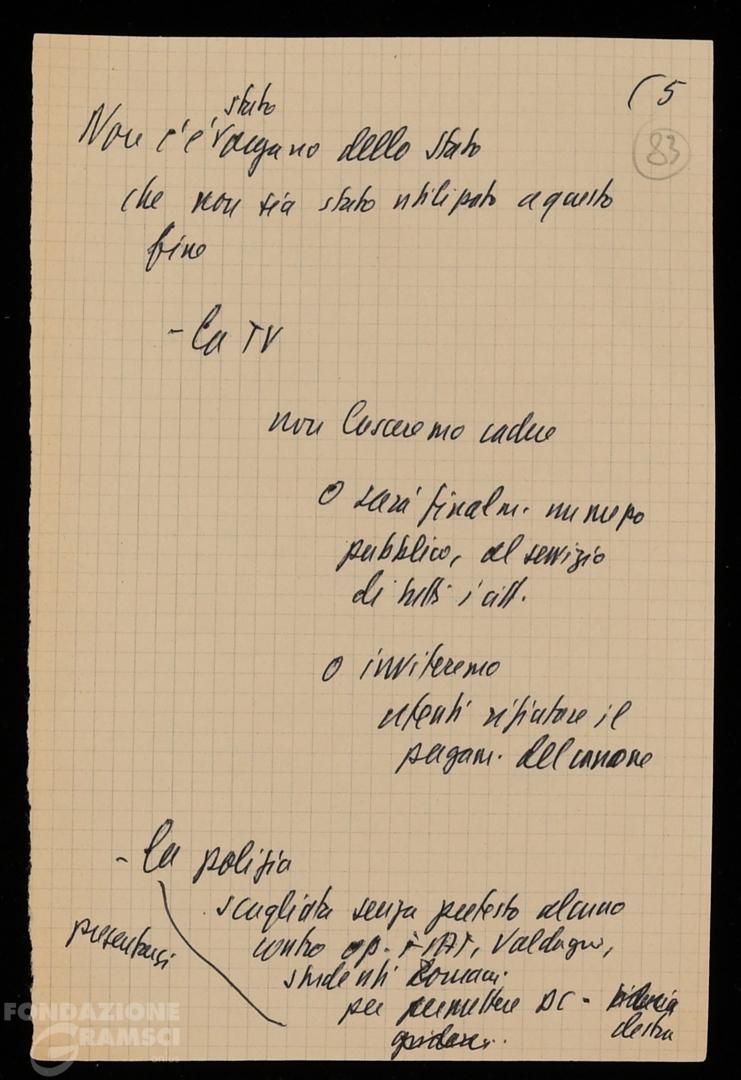 ( 5
83
stato
Non c'è organo dello stato
che non sia stato utilizzato a questo
fine
- la TV
non lasceremo cadere
o sarà finalm. un mezzo
pubblico, al servizio
di tutti i citt.
o inviteremo
utenti rifiutare il
pagam. del canone
- la polizia
scagliata senza pretesto alcuno
contro op. FIAT, Valdagno,
studenti Romani.
presentarsi
per permettere DC -
destra
FONDAZIONE
GRAMSCI